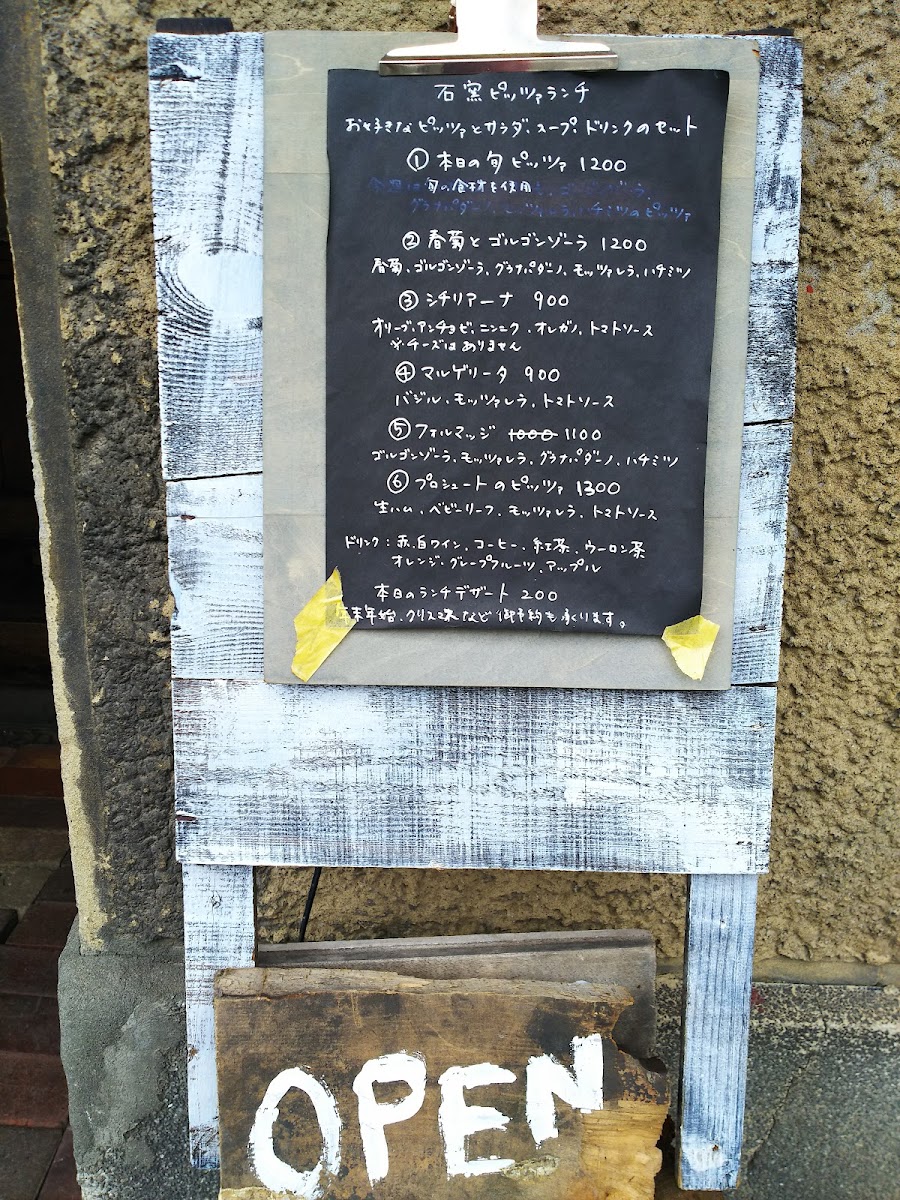 石窯ピッツァランチ
お好きなピッツァとサラダ、スープ、ドリンクのセット
① 本日の旬ピッツァ 1200
旬の食材を使用
グラナパダーノ ハチミツのピッツァ
② 春菊とゴルゴンゾーラ 1200
春菊、ゴルゴンゾーラ、グラナパダーノ、モッツァレラ、ハチミツ
③ シチリアーナ 900
オリーブ、アンチョビ、ニンニク、オレガノ、トマトソース
※チーズはありません
④ マルゲリータ 900
バジル、モッツァレラ、トマトソース
⑤ フォルマッジ 1000 1100
ゴルゴンゾーラ、モッツァレラ、グラナパダーノ、ハチミツ
⑥ プロシュートのピッツァ 1300
生ハム、ベビーリーフ、モッツァレラ、トマトソース
ドリンク：赤、白ワイン、コーヒー、紅茶、ウーロン茶
オレンジ、グレープフルーツ、アップル
本日のランチデザート 200
年末年始、クリスマスなど御予約も承ります。
OPEN